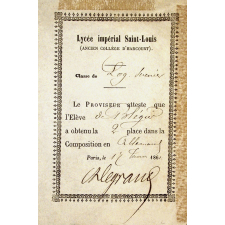 Lycée impérial Saint-Louis
(ANCIEN COLLÉGE D'HARCOURT).
Classe de
LE PROVISEUR atteste que
l'Elève
a obtenu la 2e place dans la
Composition en Allemand
Paris, le 17 186